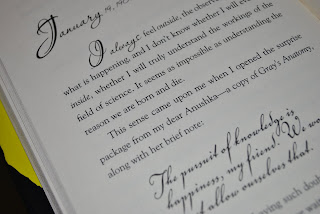 January 14, 19
I always feel outside, the observ
what is happening, and I don't know whether I will ev
inside, whether I will truly understand the workings of the
field of science. It seems as impossible as understanding the
reason we are born and die.
This sense came upon me when I opened the surprise
package from my dear Anushka—a copy of Gray's Anatomy,
along with her brief note:
The pursuit of knowledge is
happiness, my friend. We wo
t allow ourselves that.
ing such dou